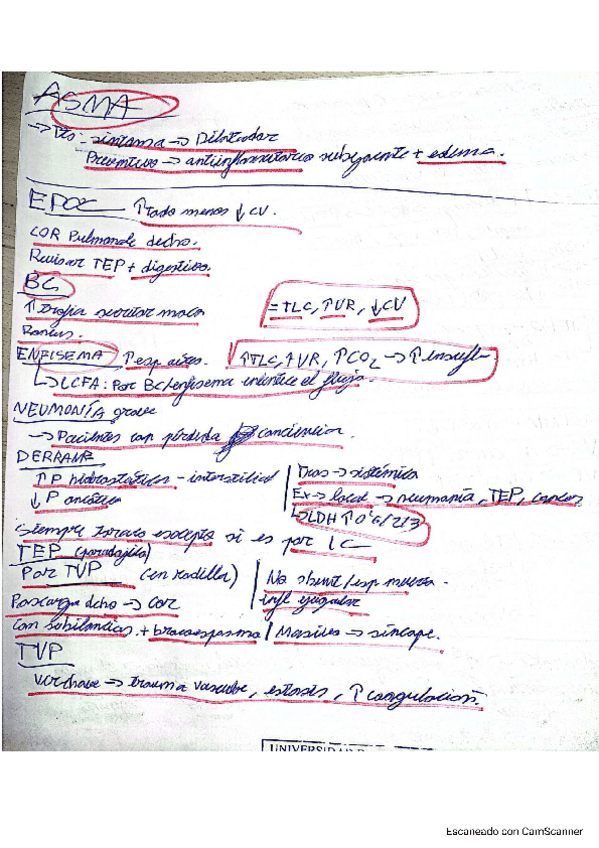 ASMA
→ Tto - síntoma → Dilatador
Preventivo → antiinflamatorio subyacente + edema.
EPOC ↑ todo menos ↓ CV.
COR Pulmonale decho.
Revisar TEP + digestivo.
BC
↑ secretor moco = TLC, ↑ VR, ↓ CV
Roncus.
ENFISEMA ↑ esp aéreo. ↑ TLC, ↑ VR, ↑ CO2 → ↑ insufl-
↳ LCFA: Por BC/enfisema el flujo.
NEUMONÍA grave
→ Pacientes con pérdida conciencia.
DERRAME
↑ P hidrostática - intersticial Tras → sistémica
↓ P oncótica Ex → local → neumonía, TEP, cancer
↳ LDH ↑ 0'6/2/3
Siempre toraco excepto si es por IC
TEP (paradójica)
Por TVP (en rodilla) No shunt/esp muerto -
Poscarga dcho → cor infl yugular
Con sibilancias + broncoespasmo / Masivo → síncope.
TVP
Virchow → trauma vascular, estasis, ↑ coagulación.
Escaneado con CamScanner